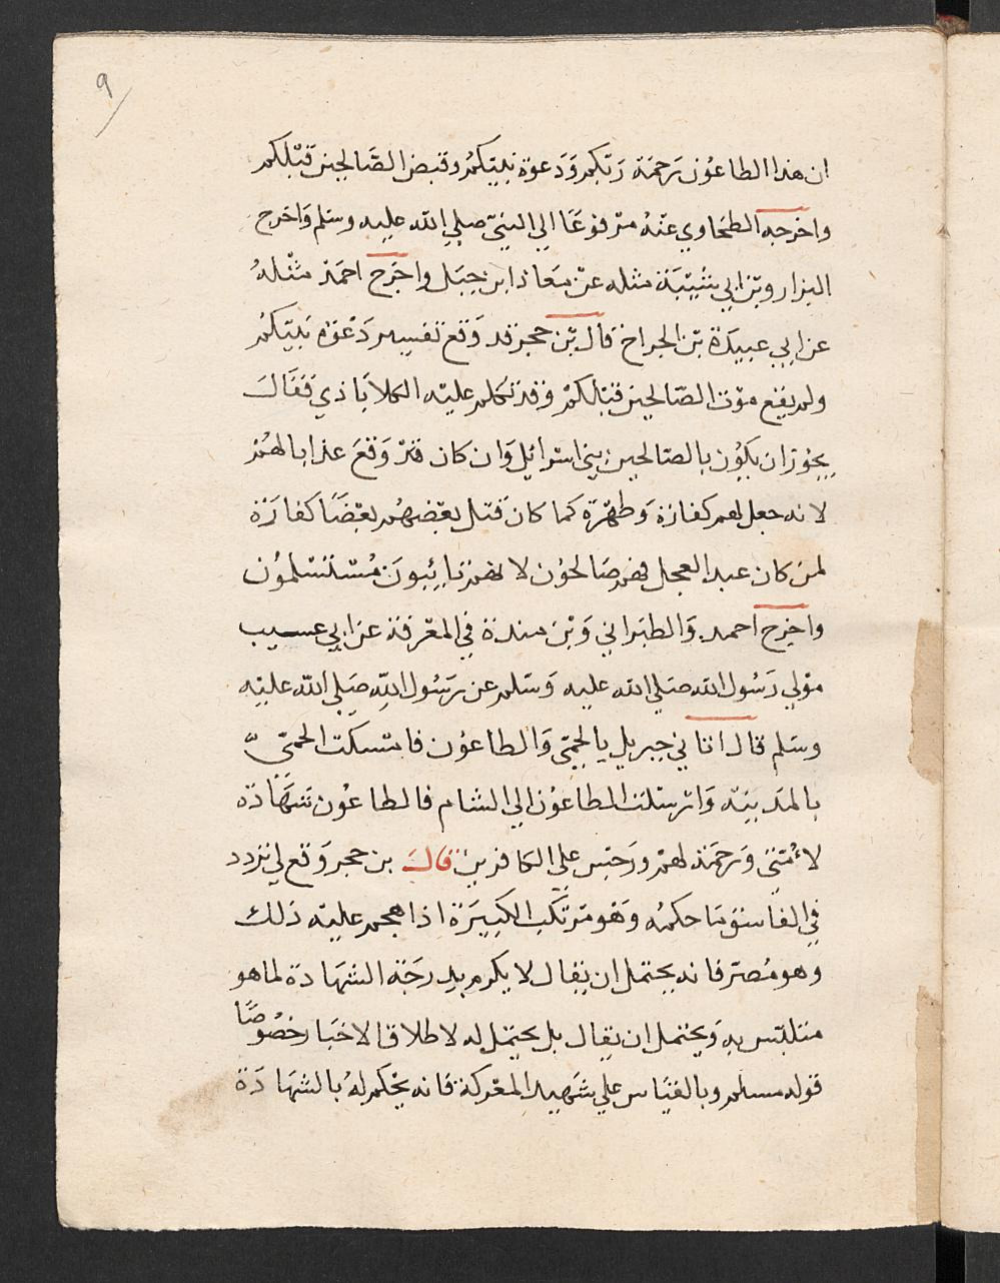 ٩
ان هذا الطاعون رحمة ربكم ودعوة نبيكم وقبض الصالحين قبلكم
واخرجه الطحاوي عنه مرفوعا الي النبي صلي الله عليه وسلم واخرج
البزار وبن ابي شيبة مثله عن معاذ ابن جبل واخرج احمد مثله
عن ابي عبيدة بن الجراح قال بن حجر قد وقع تفسير دعوة نبيكم
ولم يقع موت الصالحين قبلكم وقد تكلم عليه الكلاباذي فقال
يجوز ان يكون بالصالحين بني اسرائيل وان كان قد وقع عذابا لهم
لانه جعل لهم كفارة وطهرة كما كان قتل بعضهم بعضا كفارة
لمن كان عبد العجل فهم صالحون لانهم تايبون مستسلمون
واخرج احمد والطبراني وبن مندة في المعرفة عن ابي عسيب
مولي رسول الله صلي الله عليه وسلم عن رسول الله صلي الله عليه
وسلم قال اتاني جبريل بالحمي والطاعون فامسكت الحمي
بالمدينة وارسلت الطاعون الي الشام فالطاعون شهادة
لأمتي ورحمة لهم ورجس علي الكافرين قال بن حجر وقع لي تردد
في الفاسق ما حكمه وهو مرتكب الكبيرة اذا هجم عليه ذلك
وهو مصر فانه يحتمل ان يقال لا يكرم بدرجة الشهادة لما هو
متلبس به ويحتمل ان يقال بل يحتمل له لاطلاق الاخبار خصوصا
قوله مسلم وبالقياس علي شهيد المعركة فانه يحكم له بالشهادة